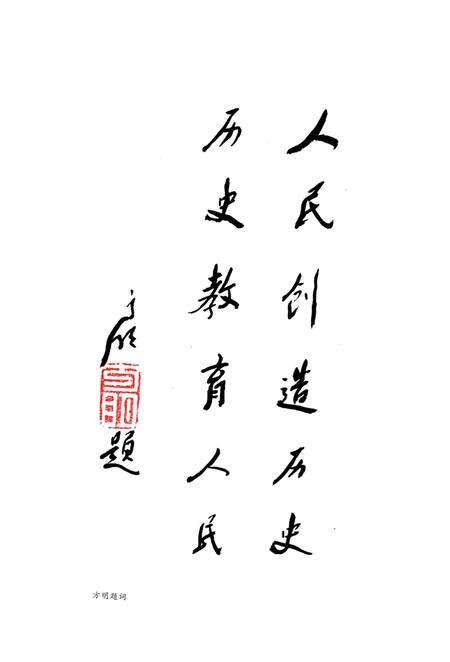 人民创造历史
历史教育人民
方明
方明
题
方明题词